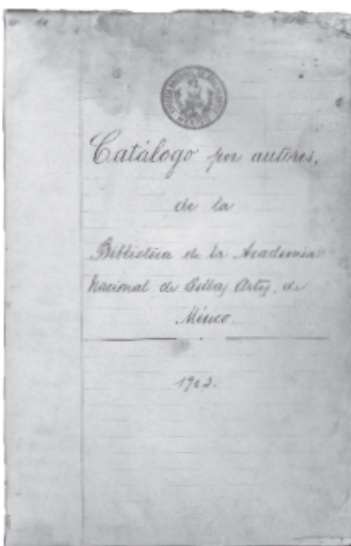 Catálogo por autores,
de la
Biblioteca de la Academia
Nacional de Bellas Artes, de
México.